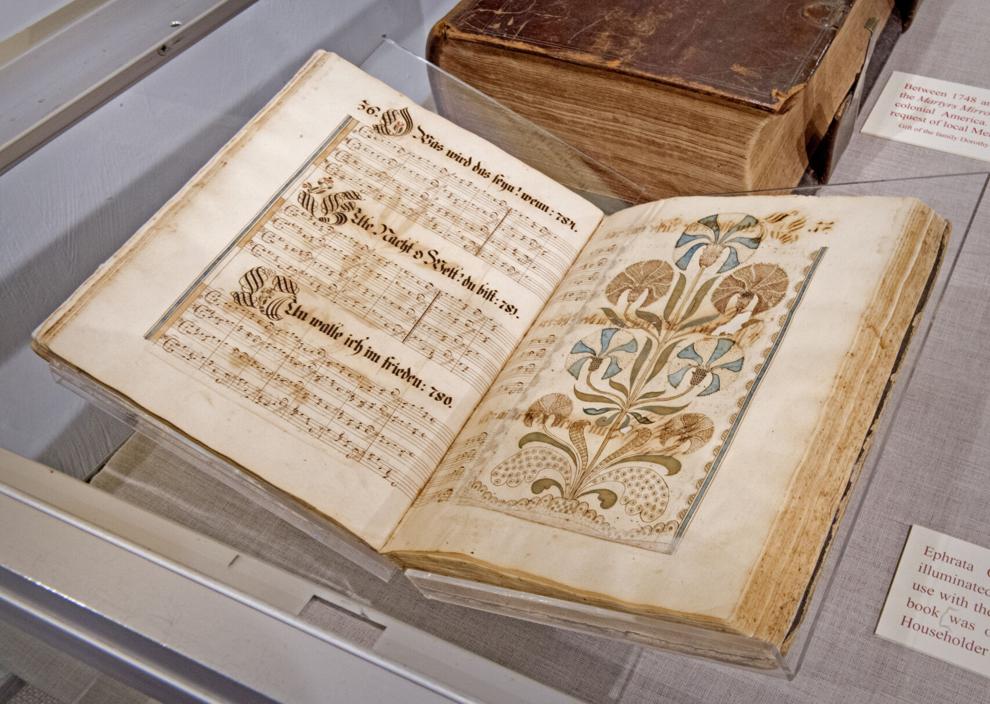 36.
Was wird das seyn! wenn: 784.
Gute Nacht o Welt! du bist: 781.
Nun walle ich im frieden: 780.
37
Between 1748 an
the Martyrs Mirro
colonial America.
request of local Me
Gift of the family Dorothy
Ephrata C
illuminated
use with the
book was o
Householder